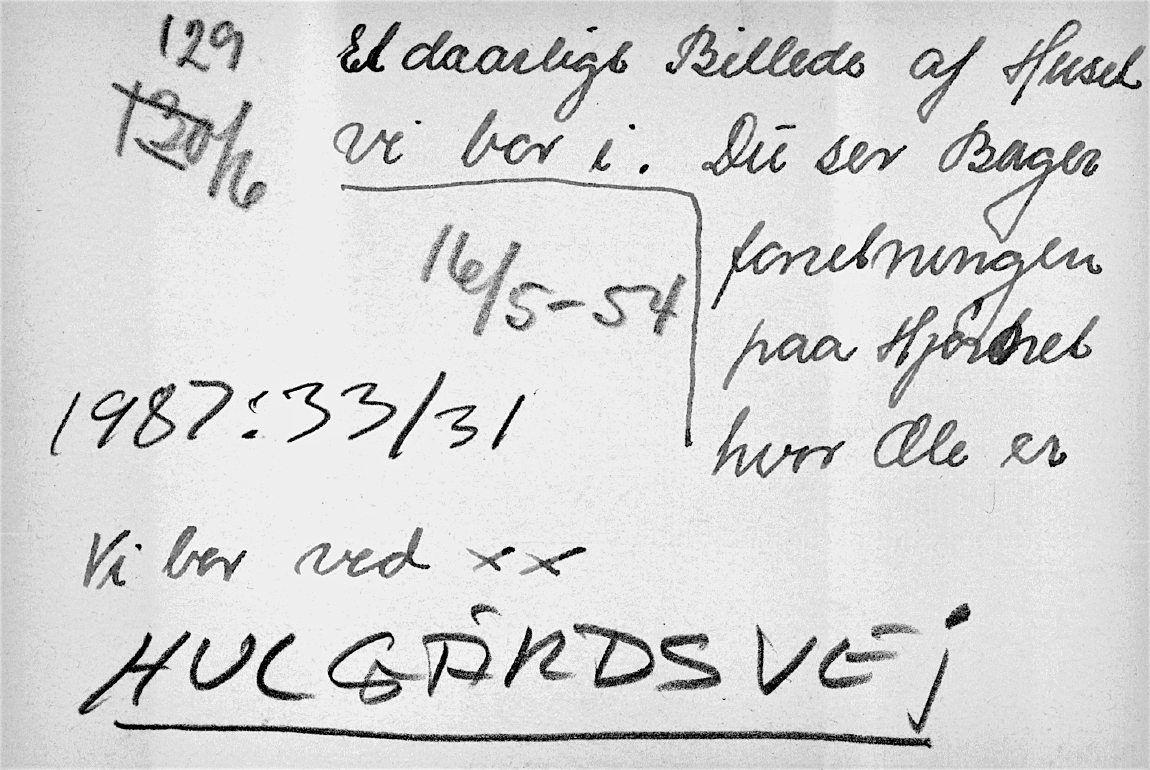 129
130/16
Et daarligt Billede af Huset
vi bor i. Du ser Bager
forretningen
paa Hjørnet
hvor Ole er
16/5-54
1987:33/31
Vi bor ved x x
HULGÅRDSVEJ